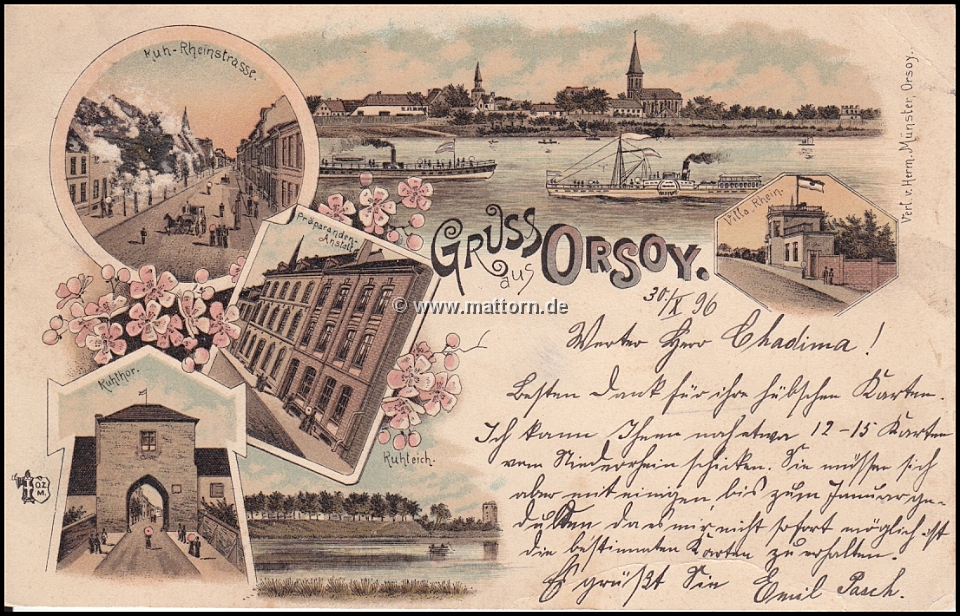 Kuh-Rheinstrasse.
Verl. v. Herm. Münster, Orsoy.
Villa Rhein.
Präparanden-
Anstalt
GRUSS
aus
ORSOY.
© www.mattorn.de
30./X 96
Kuhthor.
Kuhteich.
OZ
M.
Werter Herr Chadima!
Besten Dank für ihre hübschen Karten.
Ich kann Ihnen noch etwa 12-15 Karten
vom Niederrhein schicken. Sie müssen sich
aber mit einigen bis zum Januar ge-
dulden da es mir nicht sofort möglich ist
die bestimmten Karten zu erhalten.
Es grüßt Sie Emil Pasch.